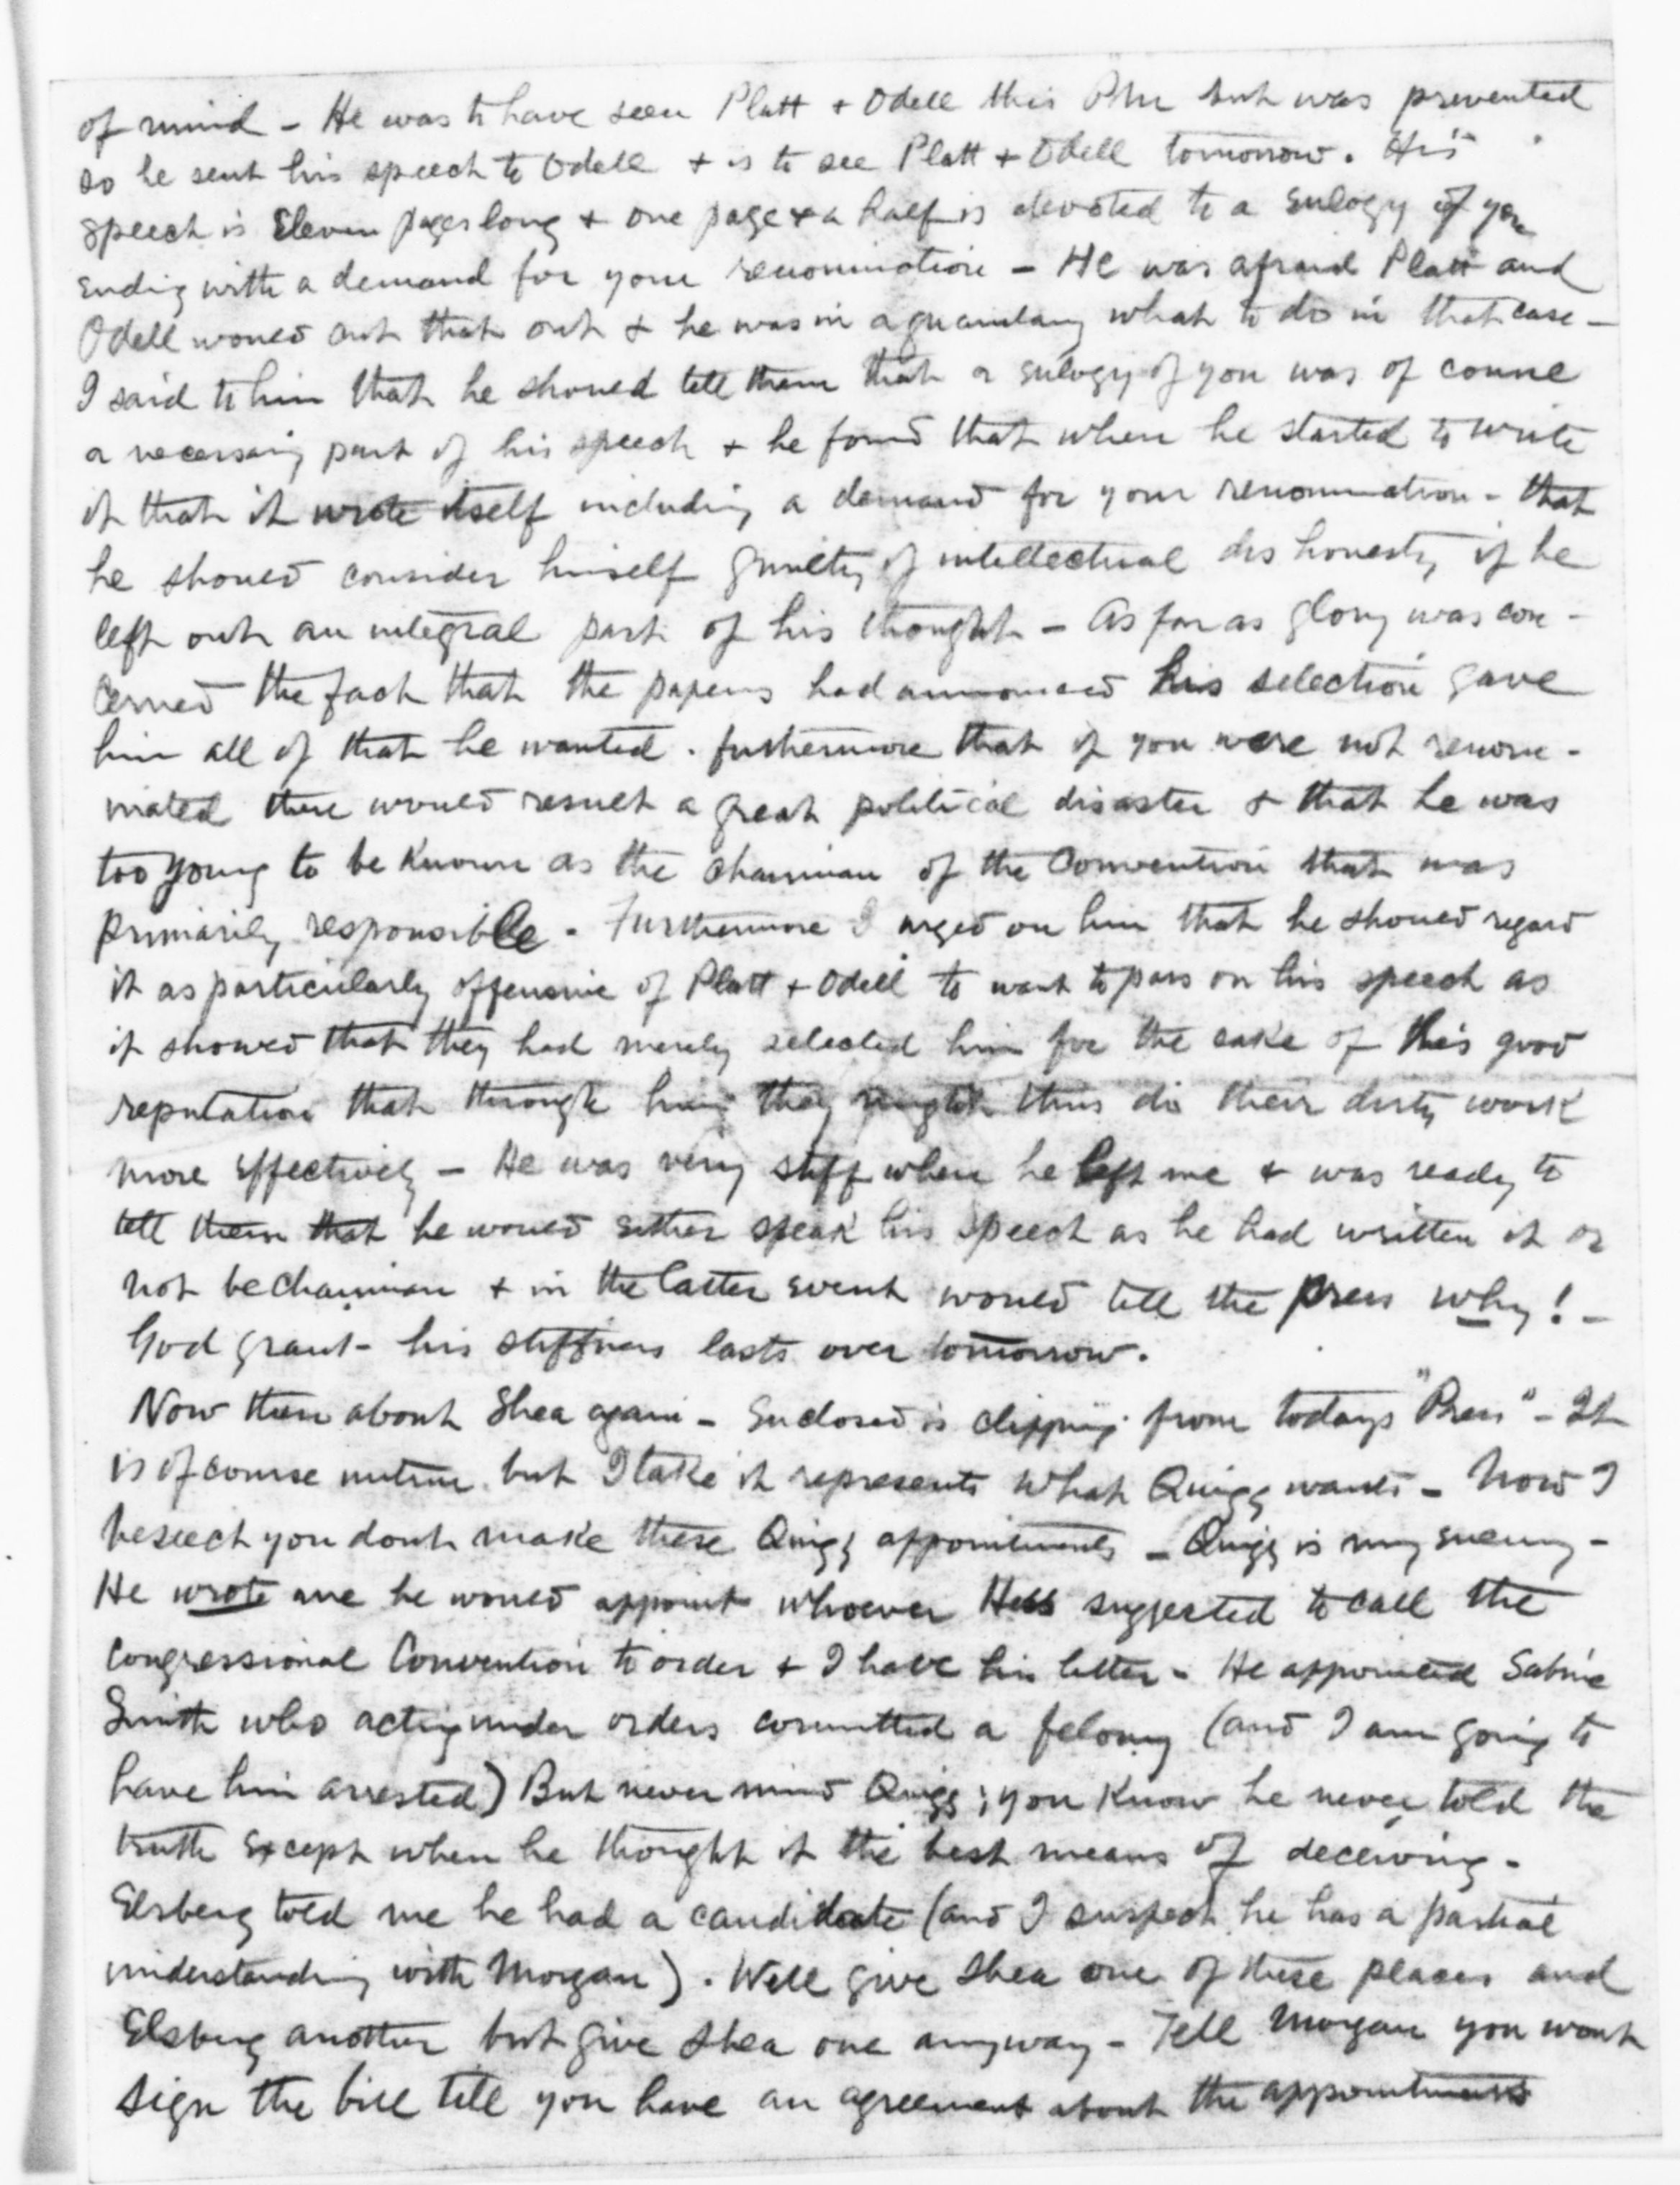 of mind - He was to have seen Platt + Odell this P.M. but was prevented
so he sent his speech to Odell + is to see Platt + Odell tomorrow. His
speech is Eleven pages long + one page + a half is devoted to a Eulogy of you
Ending with a demand for your renomination - He was afraid Platt and
Odell would cut that out + he was in a quandary what to do in that case -
I said to him that he should tell them that a eulogy of you was of course
a necessary part of his speech + he found that when he started to write
it that it wrote itself including a demand for your renomination - that
he should consider himself guilty of intellectual dishonesty if he
left out an integral part of his thought - As far as glory was con-
cerned the fact that the papers had announced his selection gave
him all of that he wanted. furthermore that if you were not renom-
inated there would result a great political disaster + that he was
too young to be known as the chairman of the Convention that was
primarily responsible - Furthermore I urged on him that he should regard
it as particularly offensive of Platt + Odell to want to pass on his speech as
it showed that they had merely selected him for the sake of his good
reputation that through him they might thus do their dirty work
more Effectively - He was very stiff when he left me + was ready to
tell them that he would either speak his speech as he had written it or
not be chairman + in the latter event would tell the press why! -
God grant - his stiffness lasts over tomorrow.
Now then about Shea again - Enclosed is clipping from todays "Press" - It
is of course untrue but I take it represents what Quigg wants - Now I
beseech you dont make these Quigg appointments - Quigg is my enemy -
He wrote me he would appoint whoever Hess suggested to call the
Congressional Convention to order + I have his letter - He appointed Sabine
Smith who acting under orders committed a felony (and I am going to
have him arrested) But never mind Quigg; you know he never told the
truth Except when he thought it the best means of deceiving -
Elsberg told me he had a candidate (and I suspect he has a partial
understanding with Morgan). Well give Shea one of these places and
Elsberg another but give Shea one anyway - Tell Morgan you wont
sign the bill till you have an agreement about the appointments